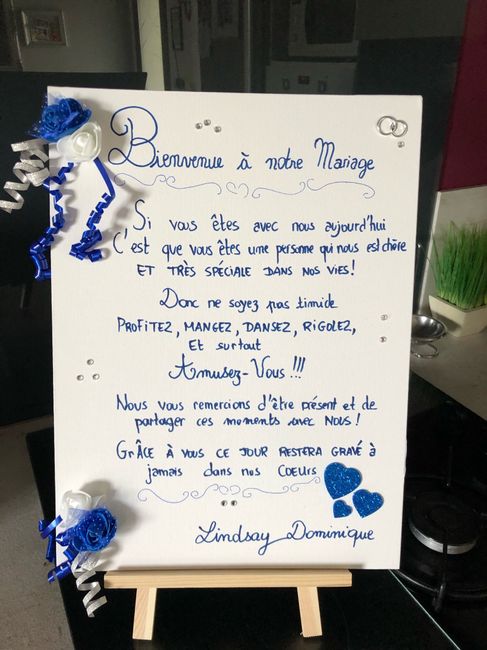 Bienvenue à notre Mariage
Si vous êtes avec nous aujourd'hui
C'est que vous êtes une personne qui nous est chère
ET TRÈS SPÉCIALE DANS NOS VIES!
Donc ne soyez pas timide
PROFITEZ, MANGEZ, DANSEZ, RIGOLEZ,
Et surtout
Amusez-Vous!!!
Nous vous remercions d'être présent et de
partager ces moments avec NOUS!
GRÂCE À VOUS CE JOUR RESTERA GRAVÉ à
jamais dans nos COEURS
Lindsay Dominique